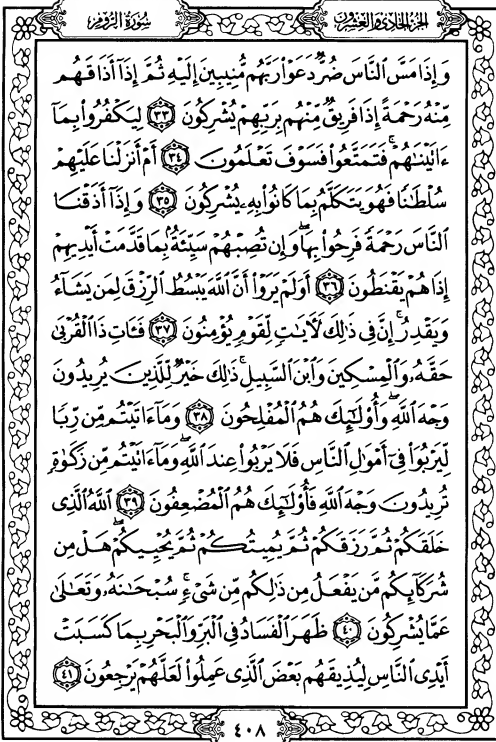 الجزء الحادي والعشرون
سورة الروم
وَإِذَا مَسَّ ٱلنَّاسَ ضُرٌّ دَعَوۡاْ رَبَّهُم مُّنِيبِينَ إِلَيۡهِ ثُمَّ إِذَآ أَذَاقَهُم
مِّنۡهُ رَحۡمَةً إِذَا فَرِيقٞ مِّنۡهُم بِرَبِّهِمۡ يُشۡرِكُونَ ٣٣ لِيَكۡفُرُواْ بِمَآ
ءَاتَيۡنَٰهُمۡۚ فَتَمَتَّعُواْ فَسَوۡفَ تَعۡلَمُونَ ٣٤ أَمۡ أَنزَلۡنَا عَلَيۡهِمۡ
سُلۡطَٰنٗا فَهُوَ يَتَكَلَّمُ بِمَا كَانُواْ بِهِۦ يُشۡرِكُونَ ٣٥ وَإِذَآ أَذَقۡنَا
ٱلنَّاسَ رَحۡمَةٗ فَرِحُواْ بِهَاۖ وَإِن تُصِبۡهُمۡ سَيِّئَةُۢ بِمَا قَدَّمَتۡ أَيۡدِيهِمۡ
إِذَا هُمۡ يَقۡنَطُونَ ٣٦ أَوَلَمۡ يَرَوۡاْ أَنَّ ٱللَّهَ يَبۡسُطُ ٱلرِّزۡقَ لِمَن يَشَآءُ
وَيَقۡدِرُۚ إِنَّ فِي ذَٰلِكَ لَأٓيَٰتٖ لِّقَوۡمٖ يُؤۡمِنُونَ ٣٧ فَـَٔاتِ ذَا ٱلۡقُرۡبَىٰ
حَقَّهُۥ وَٱلۡمِسۡكِينَ وَٱبۡنَ ٱلسَّبِيلِۚ ذَٰلِكَ خَيۡرٞ لِّلَّذِينَ يُرِيدُونَ
وَجۡهَ ٱللَّهِۖ وَأُوْلَٰٓئِكَ هُمُ ٱلۡمُفۡلِحُونَ ٣٨ وَمَآ ءَاتَيۡتُم مِّن رِّبٗا
لِّيَرۡبُوَاْ فِيٓ أَمۡوَٰلِ ٱلنَّاسِ فَلَا يَرۡبُواْ عِندَ ٱللَّهِۖ وَمَآ ءَاتَيۡتُم مِّن زَكَوٰةٖ
تُرِيدُونَ وَجۡهَ ٱللَّهِ فَأُوْلَٰٓئِكَ هُمُ ٱلۡمُضۡعِفُونَ ٣٩ ٱللَّهُ ٱلَّذِي
خَلَقَكُمۡ ثُمَّ رَزَقَكُمۡ ثُمَّ يُمِيتُكُمۡ ثُمَّ يُحۡيِيكُمۡۖ هَلۡ مِن
شُرَكَآئِكُم مَّن يَفۡعَلُ مِن ذَٰلِكُم مِّن شَيۡءٖۚ سُبۡحَٰنَهُۥ وَتَعَٰلَىٰ
عَمَّا يُشۡرِكُونَ ٤٠ ظَهَرَ ٱلۡفَسَادُ فِي ٱلۡبَرِّ وَٱلۡبَحۡرِ بِمَا كَسَبَتۡ
أَيۡدِي ٱلنَّاسِ لِيُذِيقَهُم بَعۡضَ ٱلَّذِي عَمِلُواْ لَعَلَّهُمۡ يَرۡجِعُونَ ٤١
٤٠٨